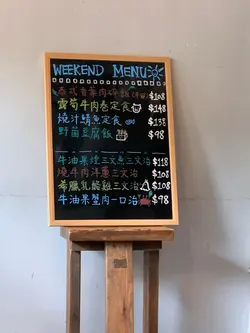 WEEKEND MENU
泰式香葉肉碎飯 $108
露筍牛肉卷定食 $148
燒汁鯖魚定食 $138
野菌豆腐飯 $98
牛油果煙三文魚三文治 $118
燒牛肉洋蔥三文治 $108
希臘乳酪雞三文治 $108
牛油果蟹肉一口治 $98